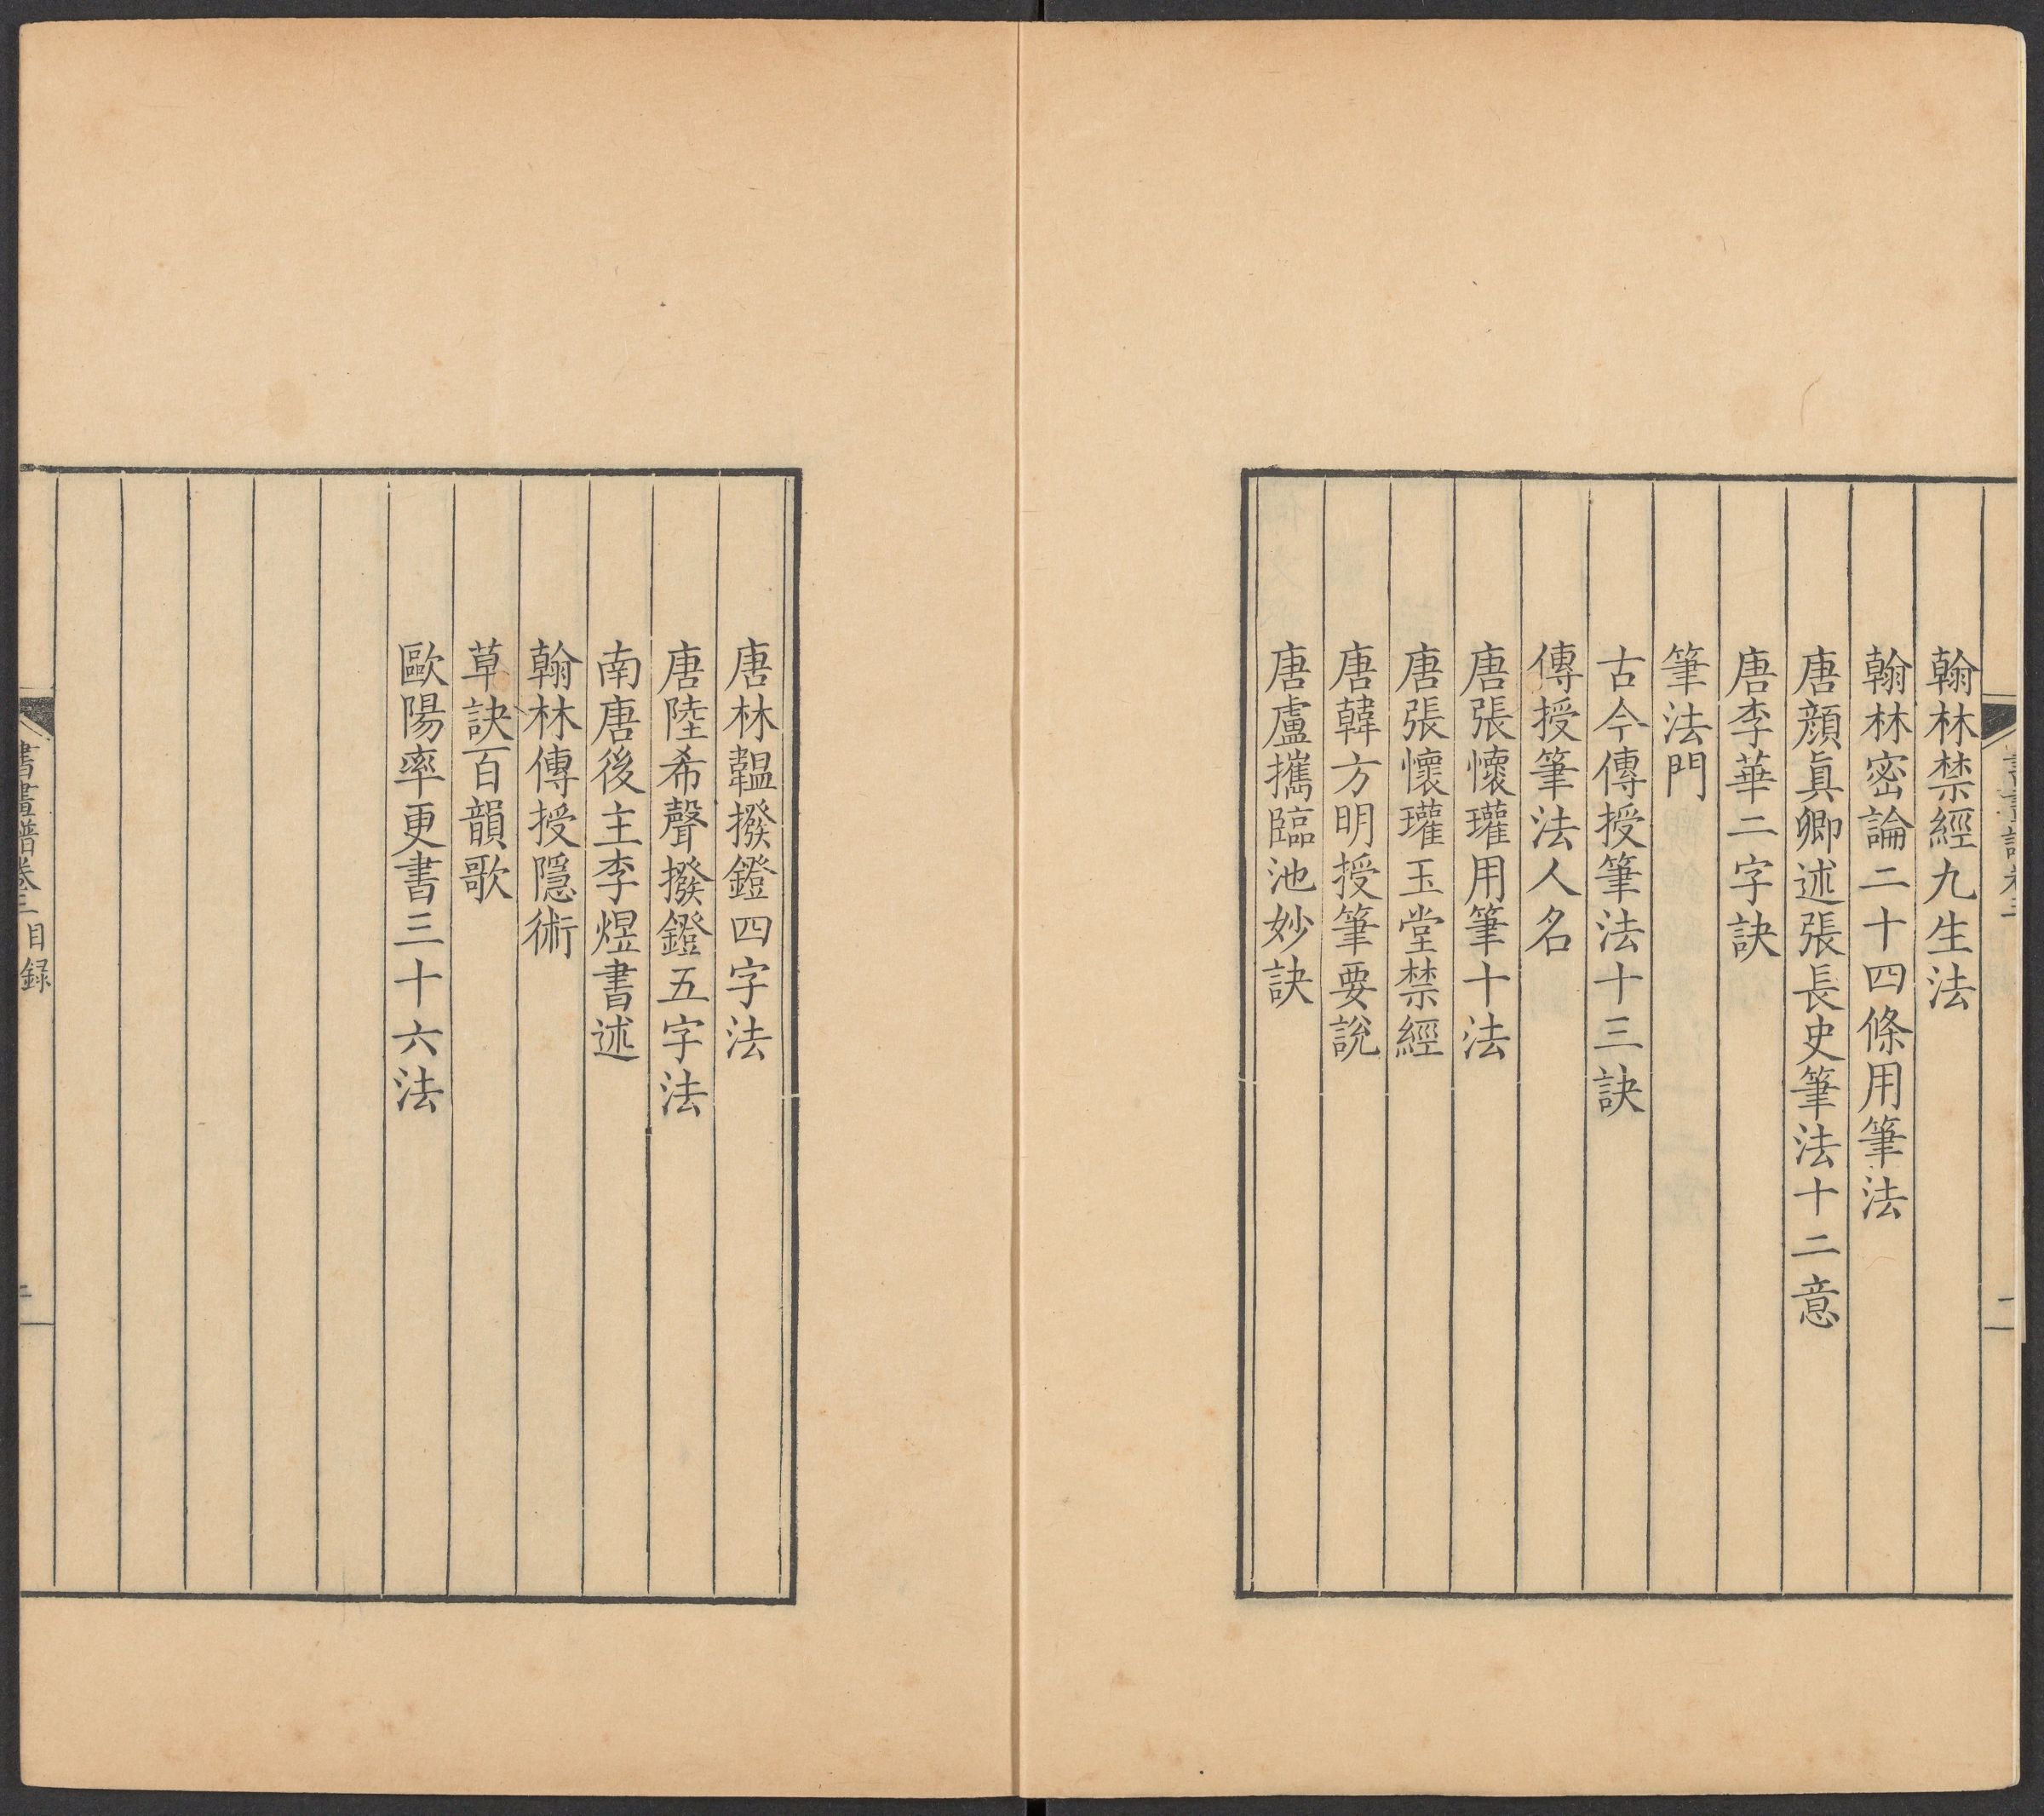 翰林禁經九生法
翰林密論二十四條用筆法
唐顔眞卿述張長史筆法十二意
唐李華二字訣
筆法門
古今傳授筆法十三訣
傳授筆法人名
唐張懷瓘用筆十法
唐張懷瓘玉堂禁經
唐韓方明授筆要說
唐盧攜臨池妙訣
唐林韞撥鐙四字法
唐陸希聲撥鐙五字法
南唐後主李煜書述
翰林傳授隱術
草訣百韻歌
歐陽率更書三十六法
書畫譜卷三目録